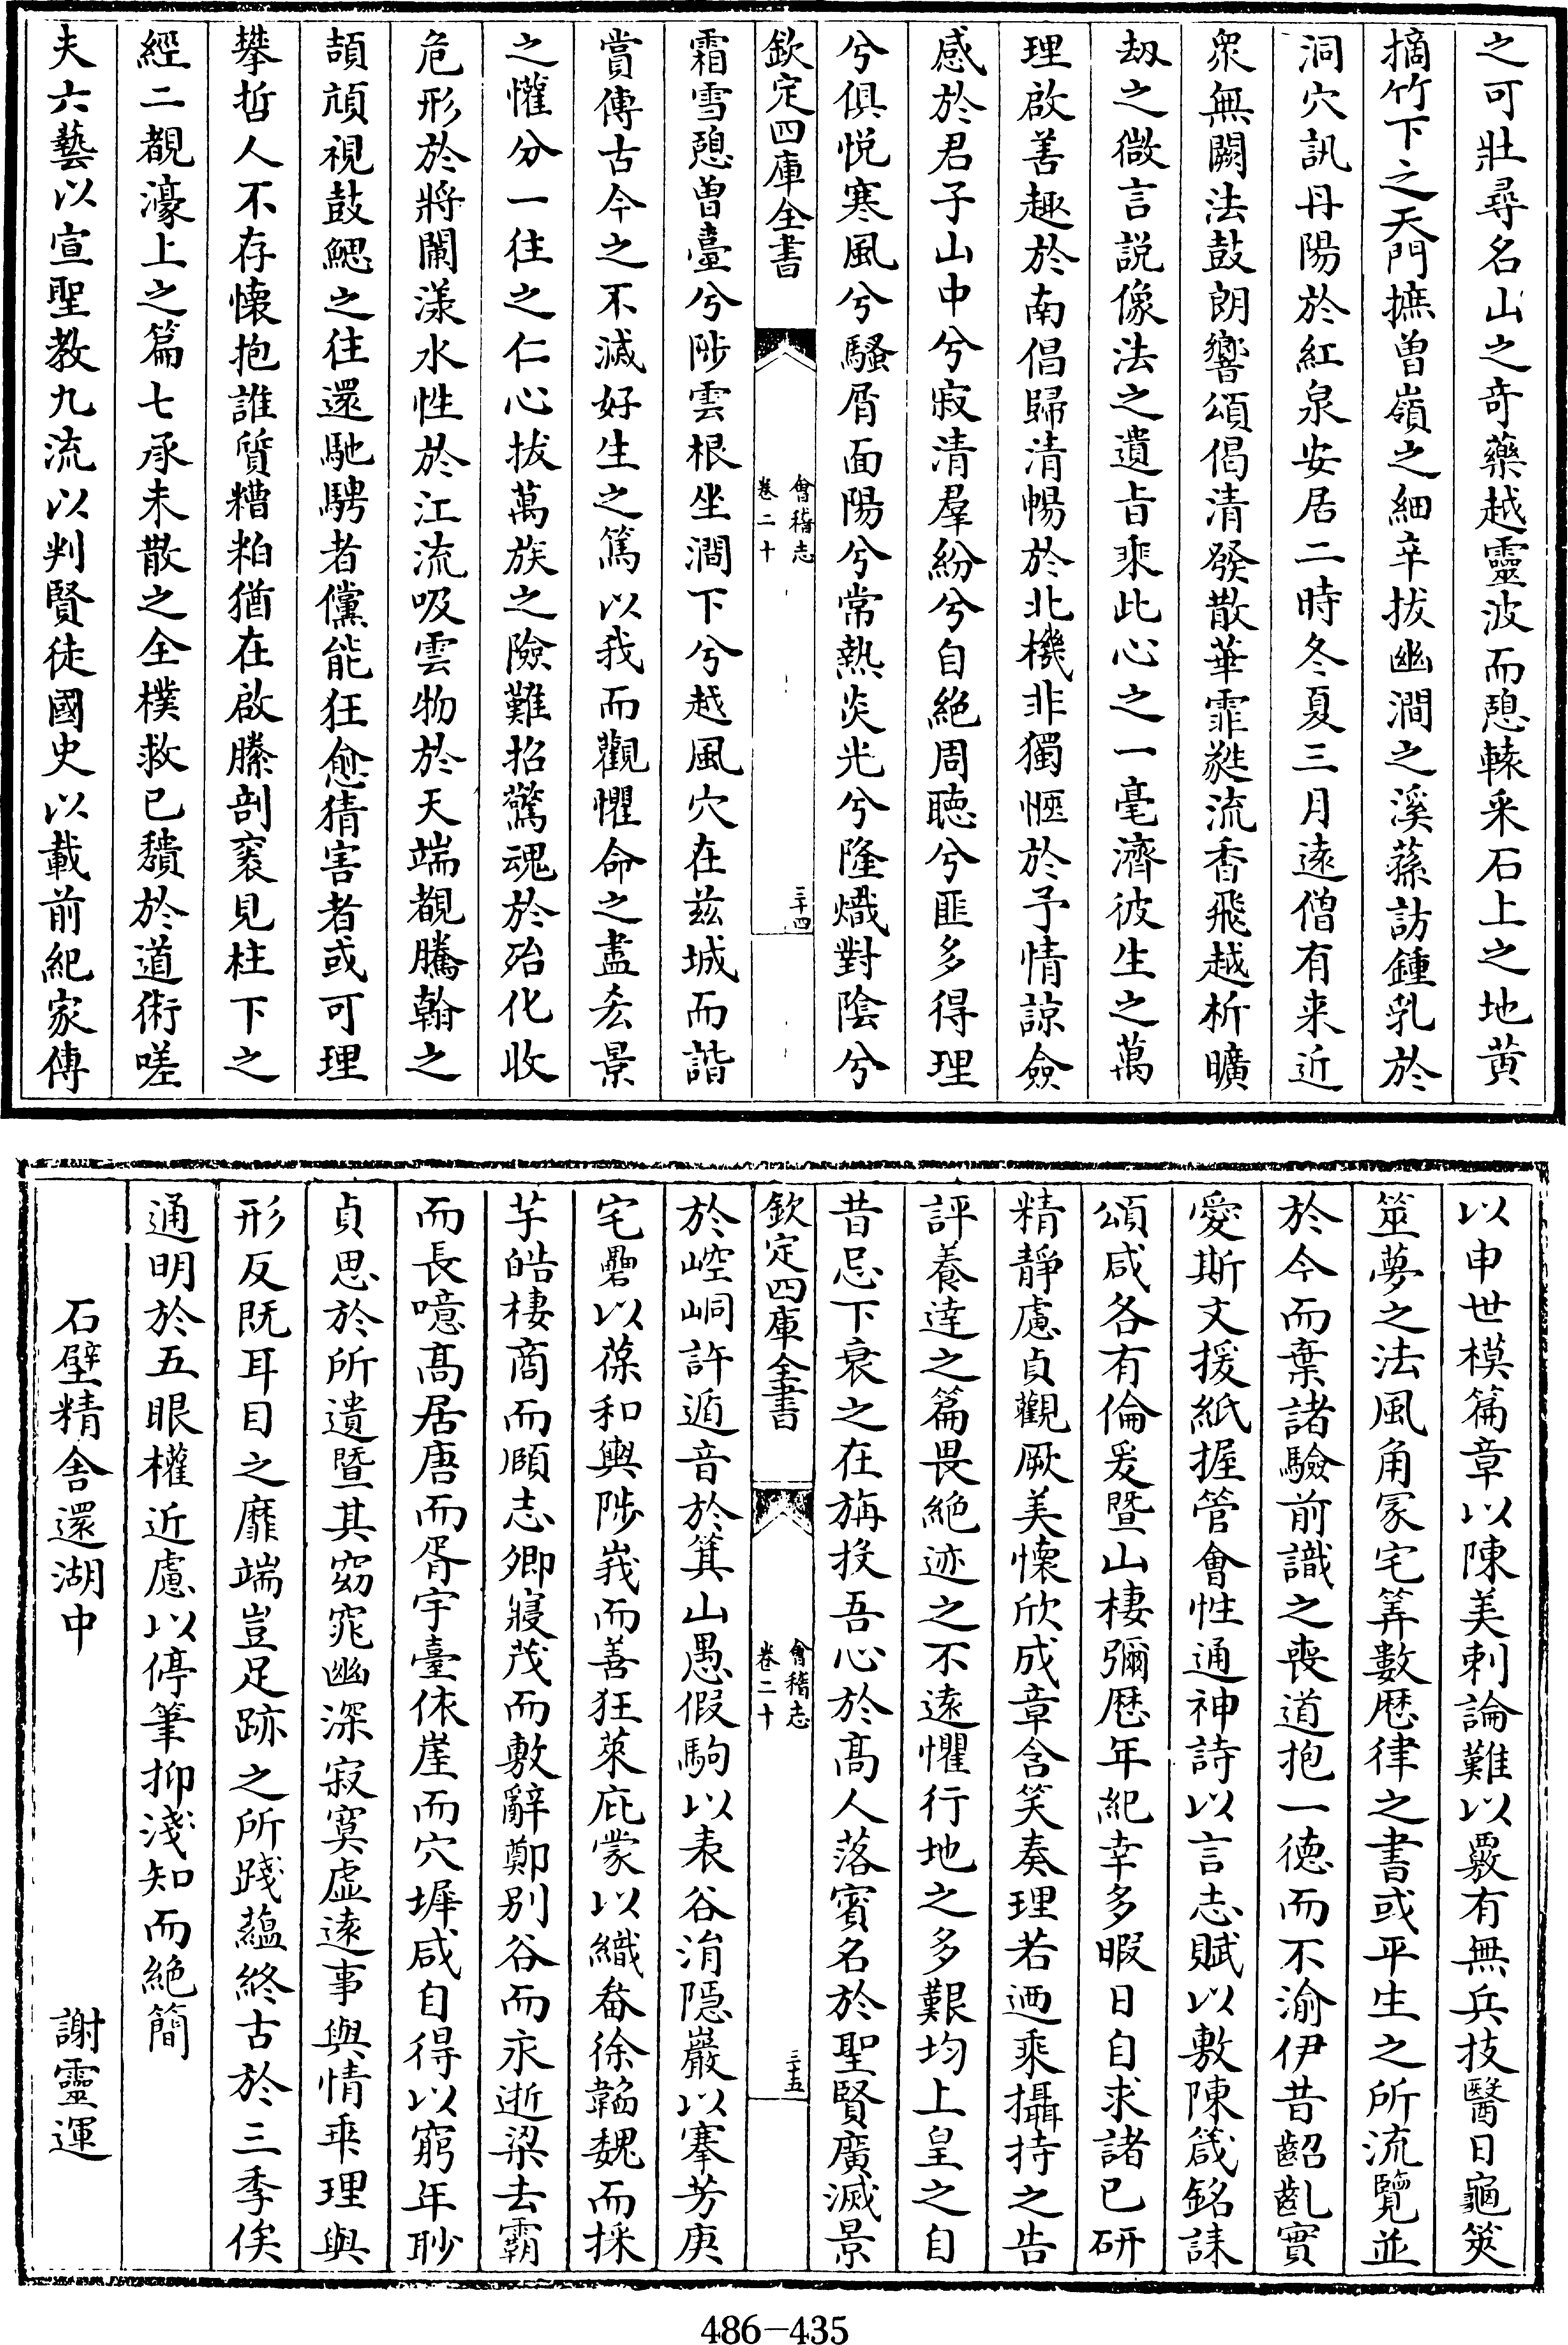 之可壯尋名山之奇藥越靈波而憩轅采石上之地黄
摘竹下之天門摭曽嶺之細辛拔幽澗之溪蓀訪鍾乳於
洞穴訊丹陽於紅泉安居二時冬夏三月逺僧有来近
衆無闕法鼓朗響頌偈清發散華霏蕤流香飛越析曠
刼之微言説像法之遺㫖乘此心之一毫濟彼生之萬
理啟善趣於南倡歸清暢於北機非獨愜於予情諒僉
感於君子山中兮寂清羣紛兮自絶周聴兮匪多得理
兮俱悦寒風兮騷屑面陽兮常熱炎光兮隆熾對隂兮
欽定四庫全書
會稽志
卷二十
三十四
霜雪憩曽臺兮陟雲根坐澗下兮越風穴在兹城而諧
賞傳古今之不滅好生之篤以我而觀懼命之盡𠫤景
之懽分一往之仁心拔萬族之險難招驚魂於殆化收
危形於將闌漾水性於江流吸雲物於天端覩騰翰之
頡頏視鼓鰓之往還馳騁者儻能狂愈猜害者或可理
攀哲人不存懐抱誰質糟粕猶在啟縢剖袠見柱下之
經二覩濠上之篇七承未散之全樸救已穨於道術嗟
夫六藝以宣聖教九流以判賢徒國史以載前紀家傳
以申世模篇章以陳美刺論難以覈有無兵技醫日龜筴
筮夢之法風角冢宅筭數歴律之書或平生之所流覽並
於今而棄諸驗前識之喪道抱一徳而不渝伊昔齠齓實
愛斯文援紙握管會性通神詩以言志賦以敷陳箴銘誄
頌咸各有倫爰暨山棲彌歴年紀幸多暇日自求諸已研
精靜慮貞觀厥美懐欣成章含笑奏理若迺乘攝持之告
評養逹之篇畏絶迹之不逺懼行地之多艱均上皇之自
昔忌下衰之在旃投吾心於髙人落賓名於聖賢廣滅景
欽定四庫全書
會稽志
卷二十
三十五
於崆峒許遁音於箕山愚假駒以表谷涓隠巖以搴芳庚
宅礨以葆和輿陟峩而善狂萊庇蒙以織畚徐韜魏而採
芋皓棲商而頤志卿寢茂而敷辭鄭别谷而永逝梁去霸
而長噫髙居唐而胥宇臺依崖而穴墀咸自得以窮年眇
貞思於所遺暨其窈窕幽深寂寞虚逺事與情乖理與
形反既耳目之靡端豈足跡之所踐蕴終古於三季俟
通明於五眼權近慮以停筆抑淺知而絶簡
石壁精舎還湖中
謝靈運
486—435